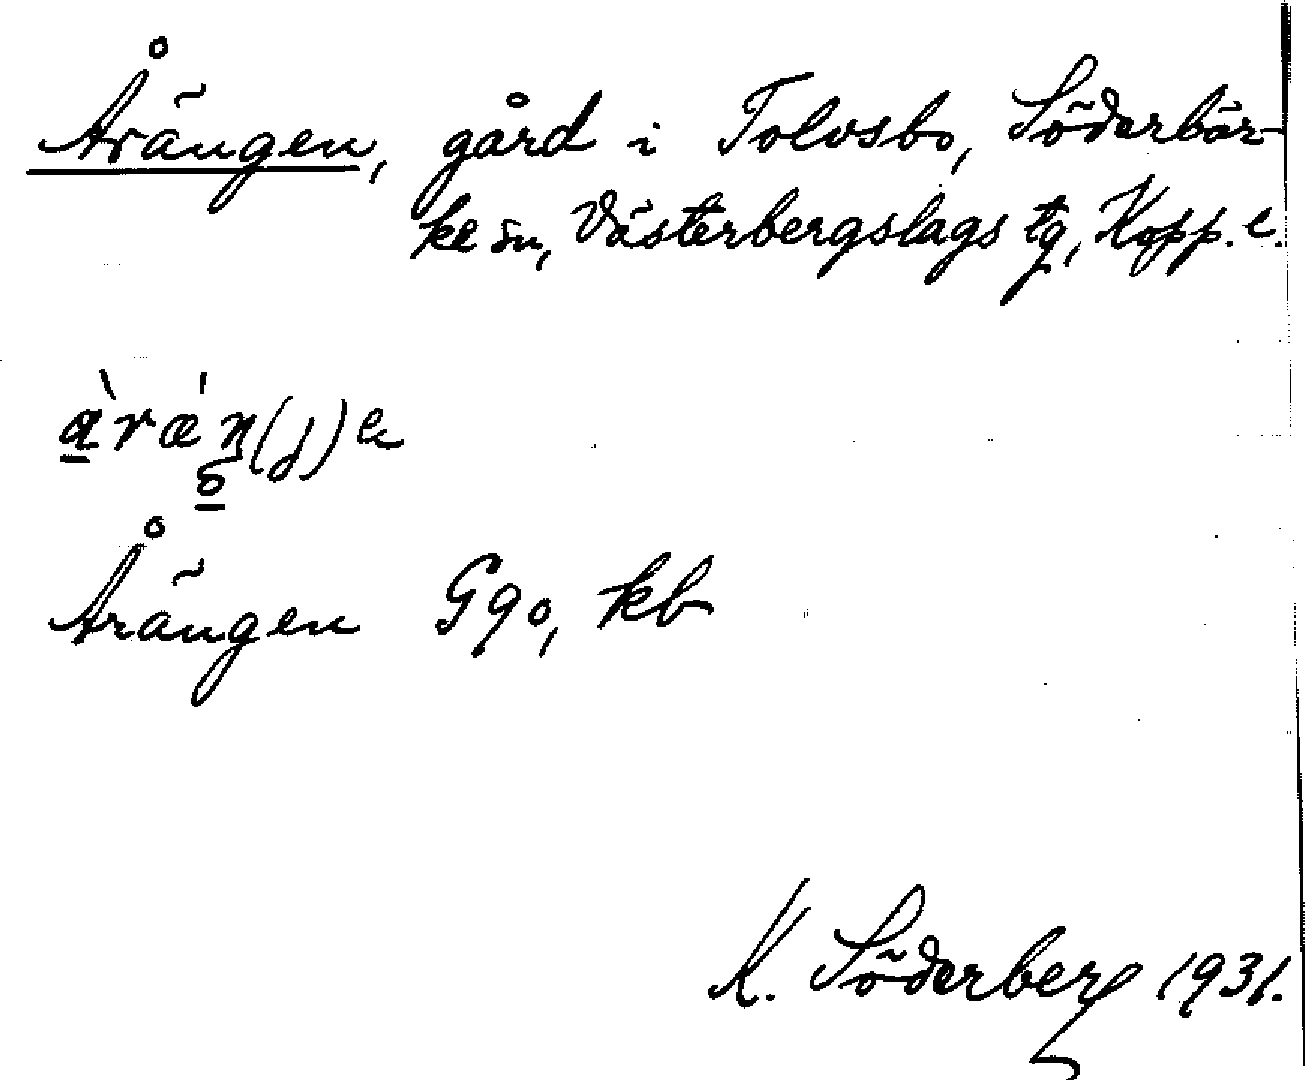 Årängen, gård i Tolvsbo, Söderbär-
ke sn, Västerbergslags tg, Kopp. l.
Årängen Gqo, kb
K. Söderberg 1931.